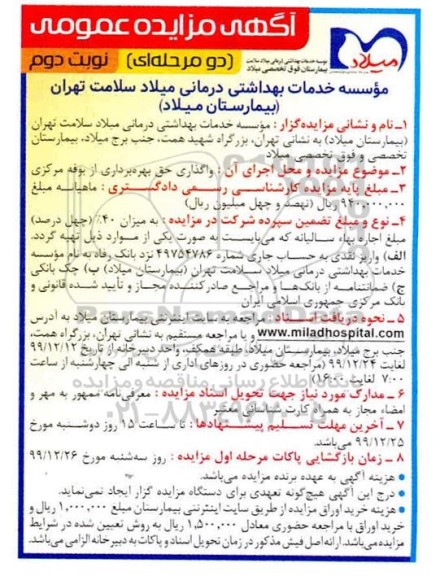 آگهی مزایده عمومی
(دو مرحله‌ای) نوبت دوم
میلاد
موسسه خدمات بهداشتی درمانی میلاد سلامت
بیمارستان فوق تخصصی میلاد
مؤسسه خدمات بهداشتی درمانی میلاد سلامت تهران
(بیمارستان میلاد)
۱ـ نام و نشانی مزایده‌گزار : مؤسسه خدمات بهداشتی درمانی میلاد سلامت تهران
(بیمارستان میلاد) به نشانی تهران، بزرگراه شهید همت، جنب برج میلاد، بیمارستان
تخصصی و فوق تخصصی میلاد
۲ـ موضوع مزایده و محل اجرای آن : واگذاری حق بهره‌برداری از بوفه مرکزی
۳ـ مبلغ پایه مزایده کارشناسی رسمی دادگستری : ماهیانه مبلغ
۹۴۰,۰۰۰,۰۰۰ ریال (نهصد و چهل میلیون ریال)
۴ـ نوع و مبلغ تضمین سپرده شرکت در مزایده : به میزان ۴۰٪ (چهل درصد)
مبلغ اجاره بهاء سالیانه که می‌بایست به صورت یکی از موارد ذیل تهیه گردد.
الف) واریز نقدی به حساب جاری شماره ۴۹۷۵۴۷۸۶ نزد بانک رفاه به نام مؤسسه
خدمات بهداشتی درمانی میلاد سلامت تهران (بیمارستان میلاد) ب) چک بانکی
ج) ضمانتنامه از بانک‌ها و مراجع صادرکننده مجاز و تأیید شده قانونی و
بانک مرکزی جمهوری اسلامی ایران
۵ ـ نحوه دریافت اسناد : مراجعه به سایت اینترنتی بیمارستان میلاد به آدرس
www.miladhospital.com و یا مراجعه مستقیم به نشانی تهران، بزرگراه همت،
جنب برج میلاد، بیمارستان میلاد، طبقه همکف، واحد دبیرخانه از تاریخ ۹۹/۱۲/۱۲
لغایت ۹۹/۱۲/۲۴ (مراجعه حضوری در روزهای اداری از شنبه الی چهارشنبه از ساعت
۷:۰۰ لغایت ۱۶:۰۰)
۶ ـ مدارک مورد نیاز جهت تحویل اسناد مزایده : معرفی‌نامه ممهور به مهر و
امضاء مجاز به همراه کارت شناسائی معتبر
۷ ـ آخرین مهلت تسلیم پیشنهادها : تا ساعت ۱۵ روز دوشنبه مورخ
۹۹/۱۲/۲۵ می‌باشد.
۸ ـ زمان بازگشایی پاکات مرحله اول مزایده : روز سه‌شنبه مورخ ۹۹/۱۲/۲۶
● هزینه آگهی به عهده برنده مزایده می‌باشد.
● درج این آگهی هیچ‌گونه تعهدی برای دستگاه مزایده گزار ایجاد نمی‌نماید.
● هزینه خرید اوراق مزایده از طریق سایت اینترنتی بیمارستان مبلغ ۱,۰۰۰,۰۰۰ ریال و
خرید اوراق با مراجعه حضوری معادل ۱,۵۰۰,۰۰۰ ریال به روش تعیین شده در شرایط
مزایده می‌باشد. ارائه اصل فیش مذکور در زمان تحویل اسناد و پاکات به دبیرخانه الزامی می‌باشد.
پایگاه اطلاع رسانی مناقصه و مزایده